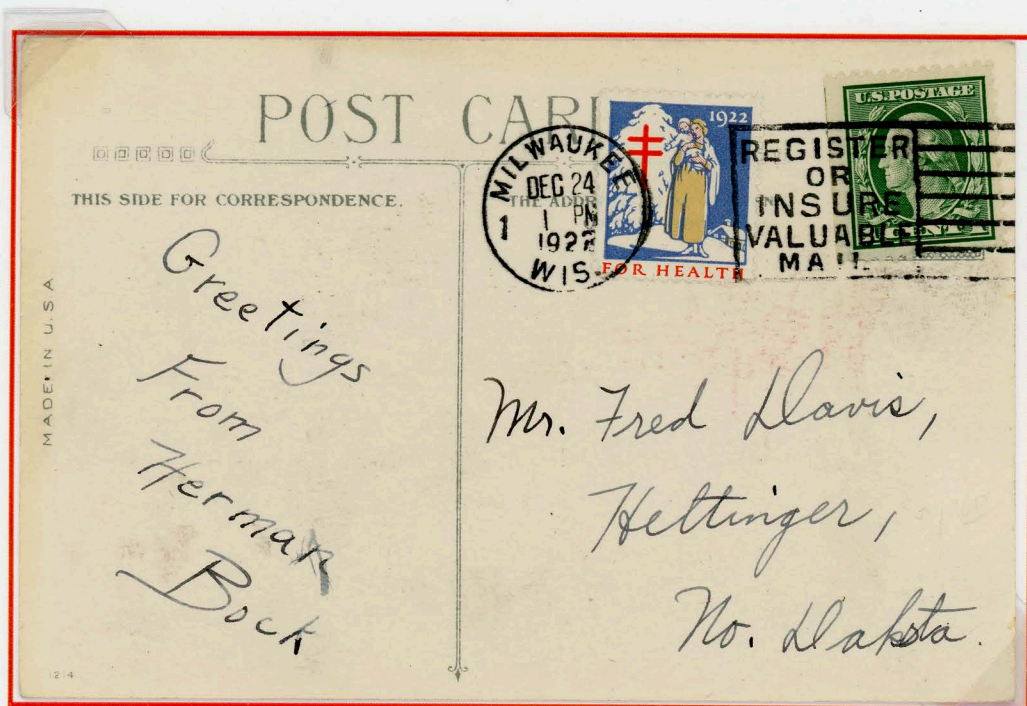 POST CARD
THIS SIDE FOR CORRESPONDENCE.
THE ADDR
MADE IN U.S.A
MILWAUKEE
DEC 24
1 1 PM
1922
WIS.
1922
FOR HEALTH
REGISTER
OR
INSURE
VALUABLE
MAIL
U.S. POSTAGE
CENT
Greetings
From
Herman
Bock
Mr. Fred Davis,
Hettinger,
No. Dakota.
1214